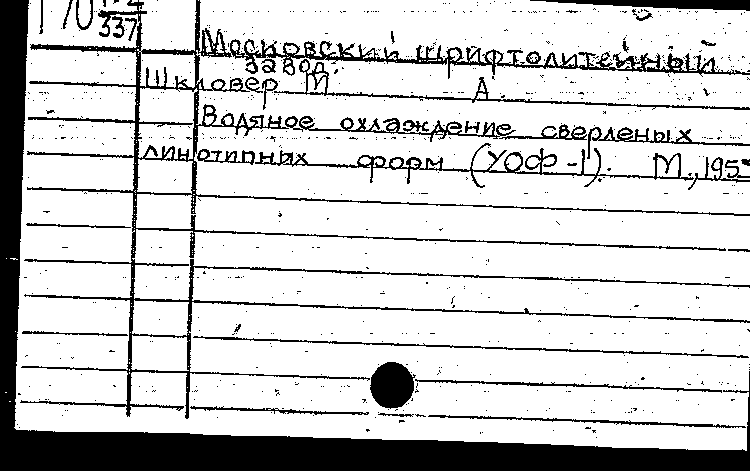 337
Московский шрифтолитейный
завод.
Шкловер М А.
Водяное охлаждение сверленых
линотипных форм (УОФ-1). М., 195